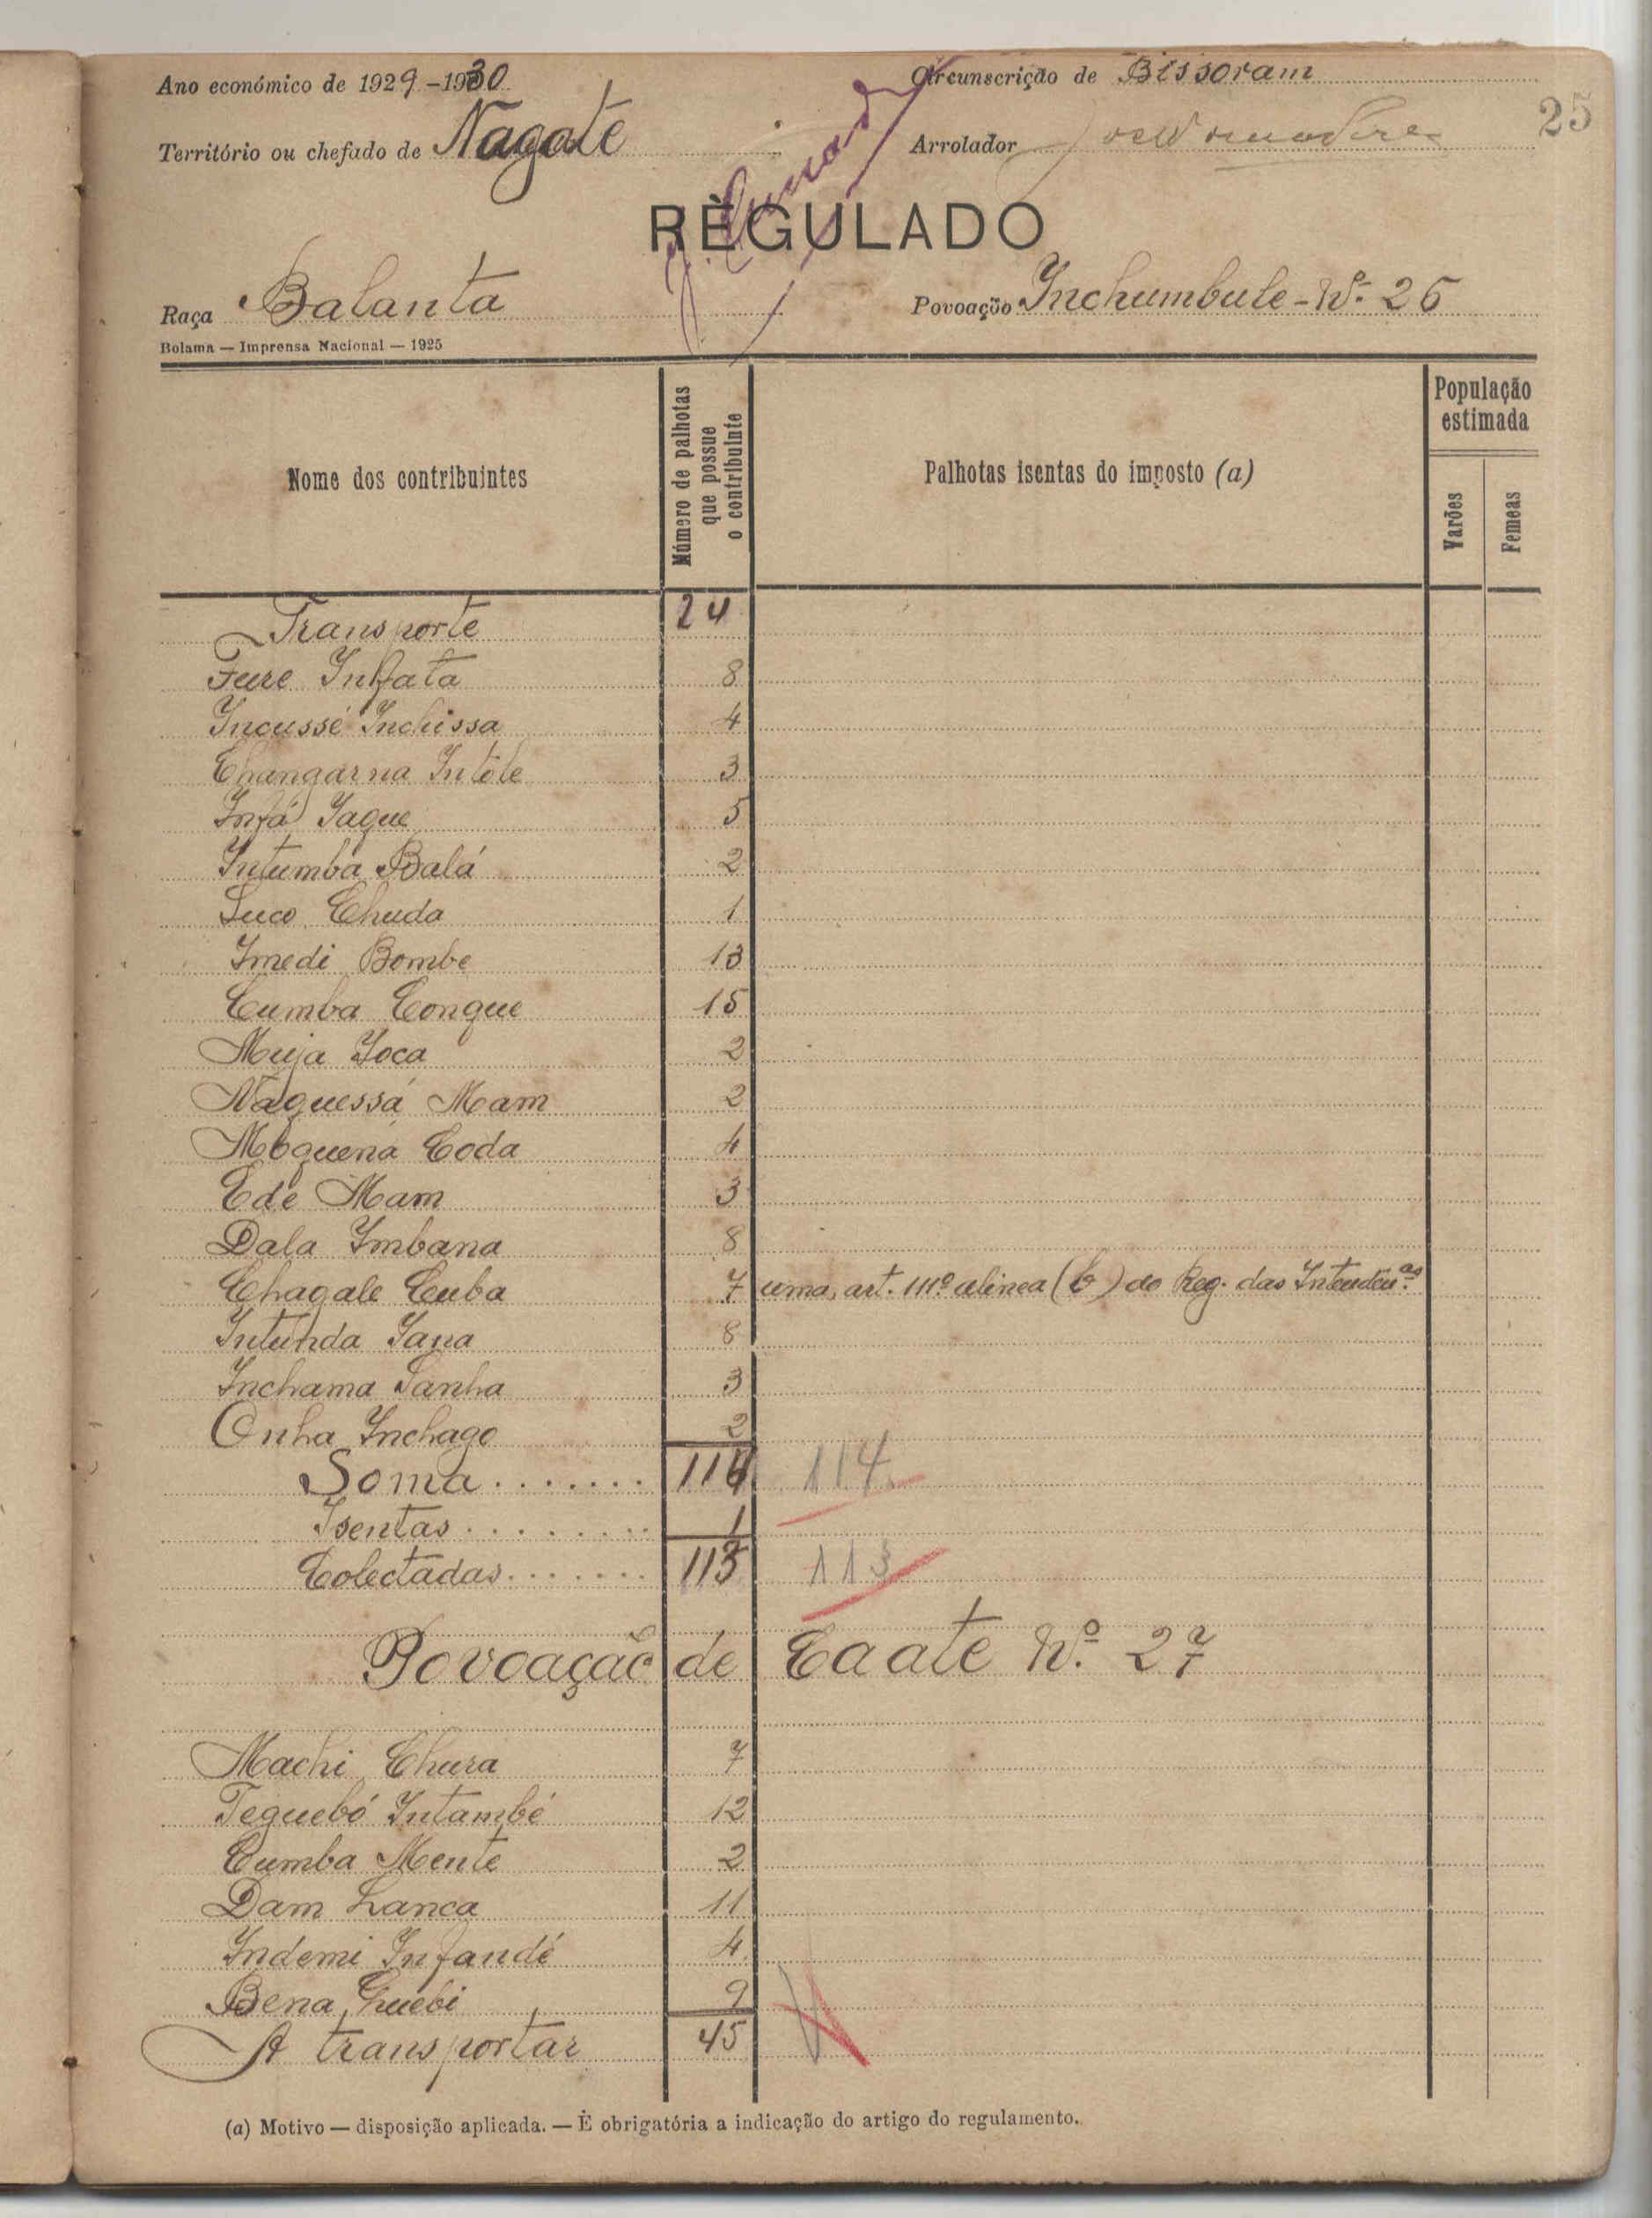 Ano económico de 1929-1930
Circunscrição de Bissoram
25
Território ou chefado de Nagate
Arrolador
REGULADO
Raça Balanta
Povoação Inchumbule - Nº 26
Bolama — Imprensa Nacional — 1925
Nome dos contribuintes
Número de palhotas que possue o contribuinte
Palhotas isentas do imposto (a)
População estimada
Varões
Femeas
Transporte 24
Fure Infata 8
Incussé Inchissa 4
Changarna Intóte 3
Infá Iaque 5
Intumba Balá 2
Suco Chuda 1
Imedi Bombe 13
Cumba Congue 15
Muja Ioca 2
Naquessá Mam 2
Moguená Coda 4
Ede Mam 3
Dala Imbana 8
Chagale Cuba 7 uma, art. 111º alinea (b) do Reg. das Intendên.as
Intunda Iana 8
Inchama Sanha 3
Onha Inchago 2
Soma....... 114 114
Isentas......... 1
Colectadas....... 113 113
Povoação de Caate Nº 27
Machi Chura 7
Teguebó Intambé 12
Cumba Mente 2
Dam Lanca 11
Indemi Infandé 4
Bena Guebi 9
A transportar 45
(a) Motivo — disposição aplicada. — É obrigatória a indicação do artigo do regulamento.